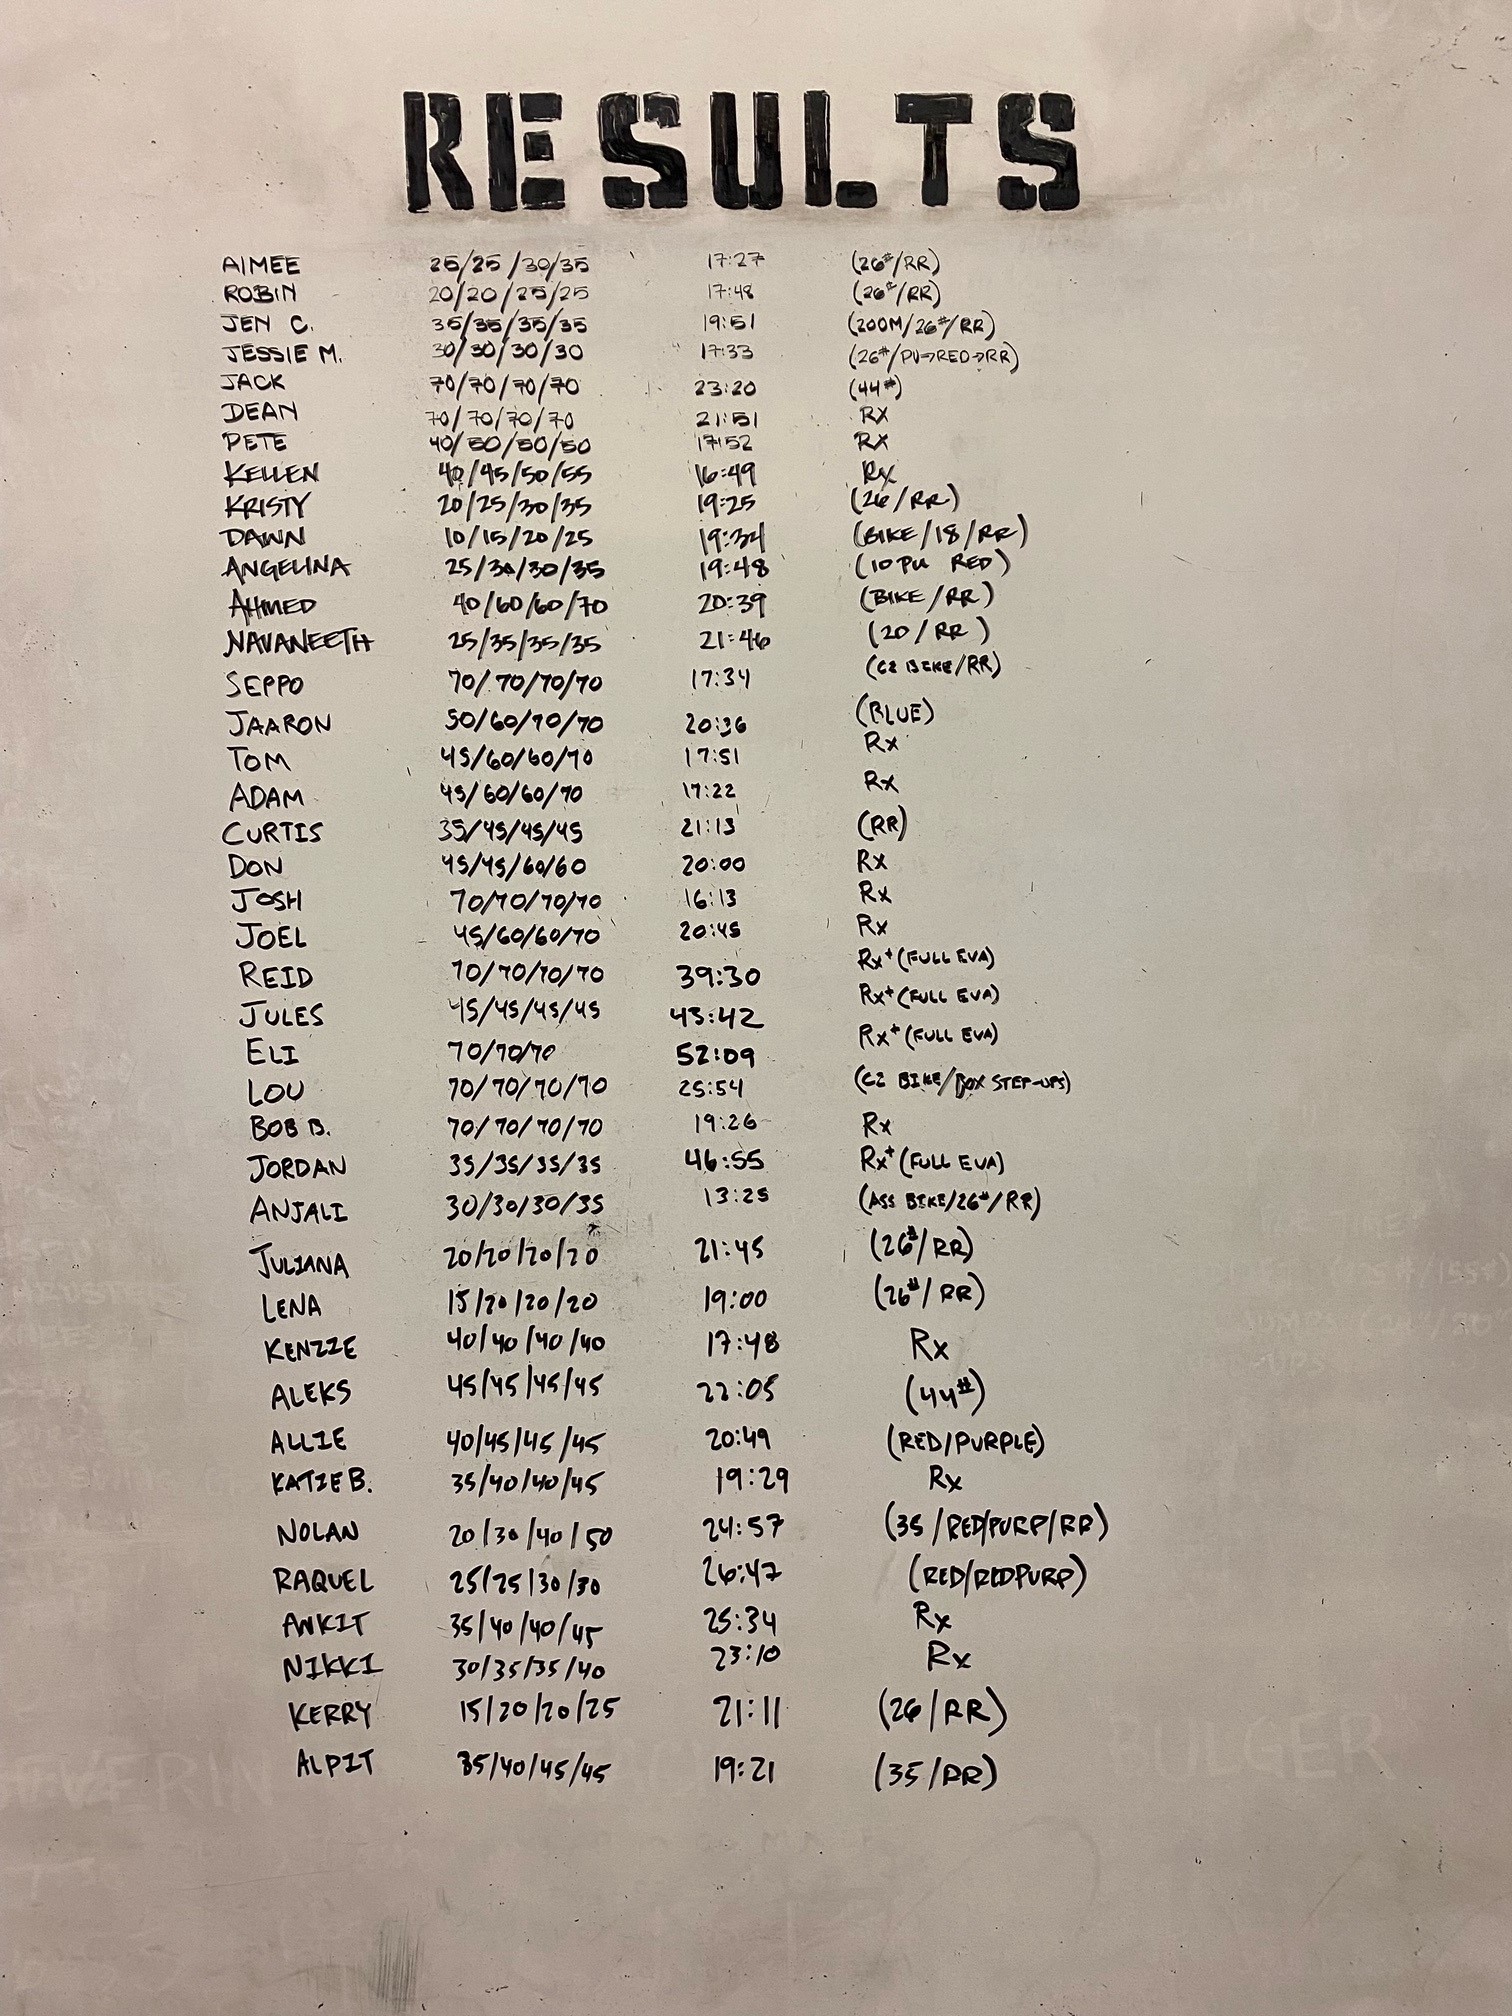 RESULTS
AIMEE 25/25/30/35 17:27 (26#/RR)
ROBIN 20/20/25/25 17:48 (26#/RR)
JEN C. 35/35/35/35 19:51 (200M/26#/RR)
JESSIE M. 30/30/30/30 17:33 (26#/PU→RED→RR)
JACK 70/70/70/70 23:20 (44#)
DEAN 70/70/70/70 21:51 Rx
PETE 40/50/50/50 17:52 Rx
KELLEN 40/45/50/55 16:49 Rx
KRISTY 20/25/30/35 19:25 (26/RR)
DAWN 10/15/20/25 19:34 (BIKE/18/RR)
ANGELINA 25/30/30/35 19:48 (10 PU RED)
AHMED 40/60/60/70 20:39 (BIKE/RR)
NAVANEETH 25/35/35/35 21:46 (20/RR)
SEPPO 70/70/70/70 17:34 (C2 BIKE/RR)
JAARON 50/60/70/70 20:36 (BLUE)
TOM 45/60/60/70 17:51 Rx
ADAM 45/60/60/70 17:22 Rx
CURTIS 35/45/45/45 21:13 (RR)
DON 45/45/60/60 20:00 Rx
JOSH 70/70/70/70 16:13 Rx
JOEL 45/60/60/70 20:45 Rx
REID 70/70/70/70 39:30 Rx+ (FULL EVA)
JULES 45/45/45/45 43:42 Rx+ (FULL EVA)
ELI 70/70/70 52:09 Rx+ (FULL EVA)
LOU 70/70/70/70 25:54 (C2 BIKE/BOX STEP-UPS)
BOB B. 70/70/70/70 19:26 Rx
JORDAN 35/35/35/35 46:55 Rx+ (FULL EVA)
ANJALI 30/30/30/35 13:25 (ASS BIKE/26#/RR)
JULIANA 20/20/20/20 21:45 (26#/RR)
LENA 15/20/20/20 19:00 (26#/RR)
KENZIE 40/40/40/40 17:48 Rx
ALEKS 45/45/45/45 22:05 (44#)
ALLIE 40/45/45/45 20:49 (RED/PURPLE)
KATIE B. 35/40/40/45 19:29 Rx
NOLAN 20/30/40/50 24:57 (35/RED/PURP/RR)
RAQUEL 25/25/30/30 26:47 (RED/REDPURP)
ANKIT 35/40/40/45 25:34 Rx
NIKKI 30/35/35/40 23:10 Rx
KERRY 15/20/20/25 21:11 (26/RR)
ALPIT 35/40/45/45 19:21 (35/RR)